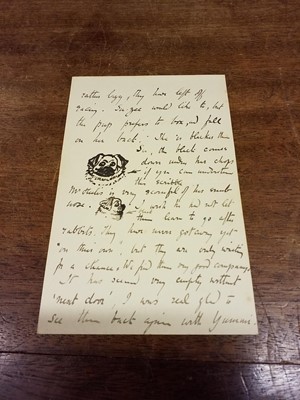 rather lazy, they have left off
racing. Su-zee would like to, but
the pup prefers to box, and pull
on her back. She is blacker than
Su, the black comes
down under her chops
if you can understand
this scribble
Mr is very scornful of his
nose. I wish he did not let
them learn to go after
rabbits. They have never got away yet
"on their own", but they are only waiting
for a chance. We find them very good company.
It has seemed very empty without
'next door'. I was real glad to
see them back again with